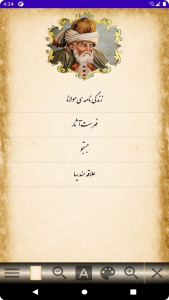 4:34
زندگی نامه ی مولانا
فهرست آثار
جستجو
علاقه مندیها
A